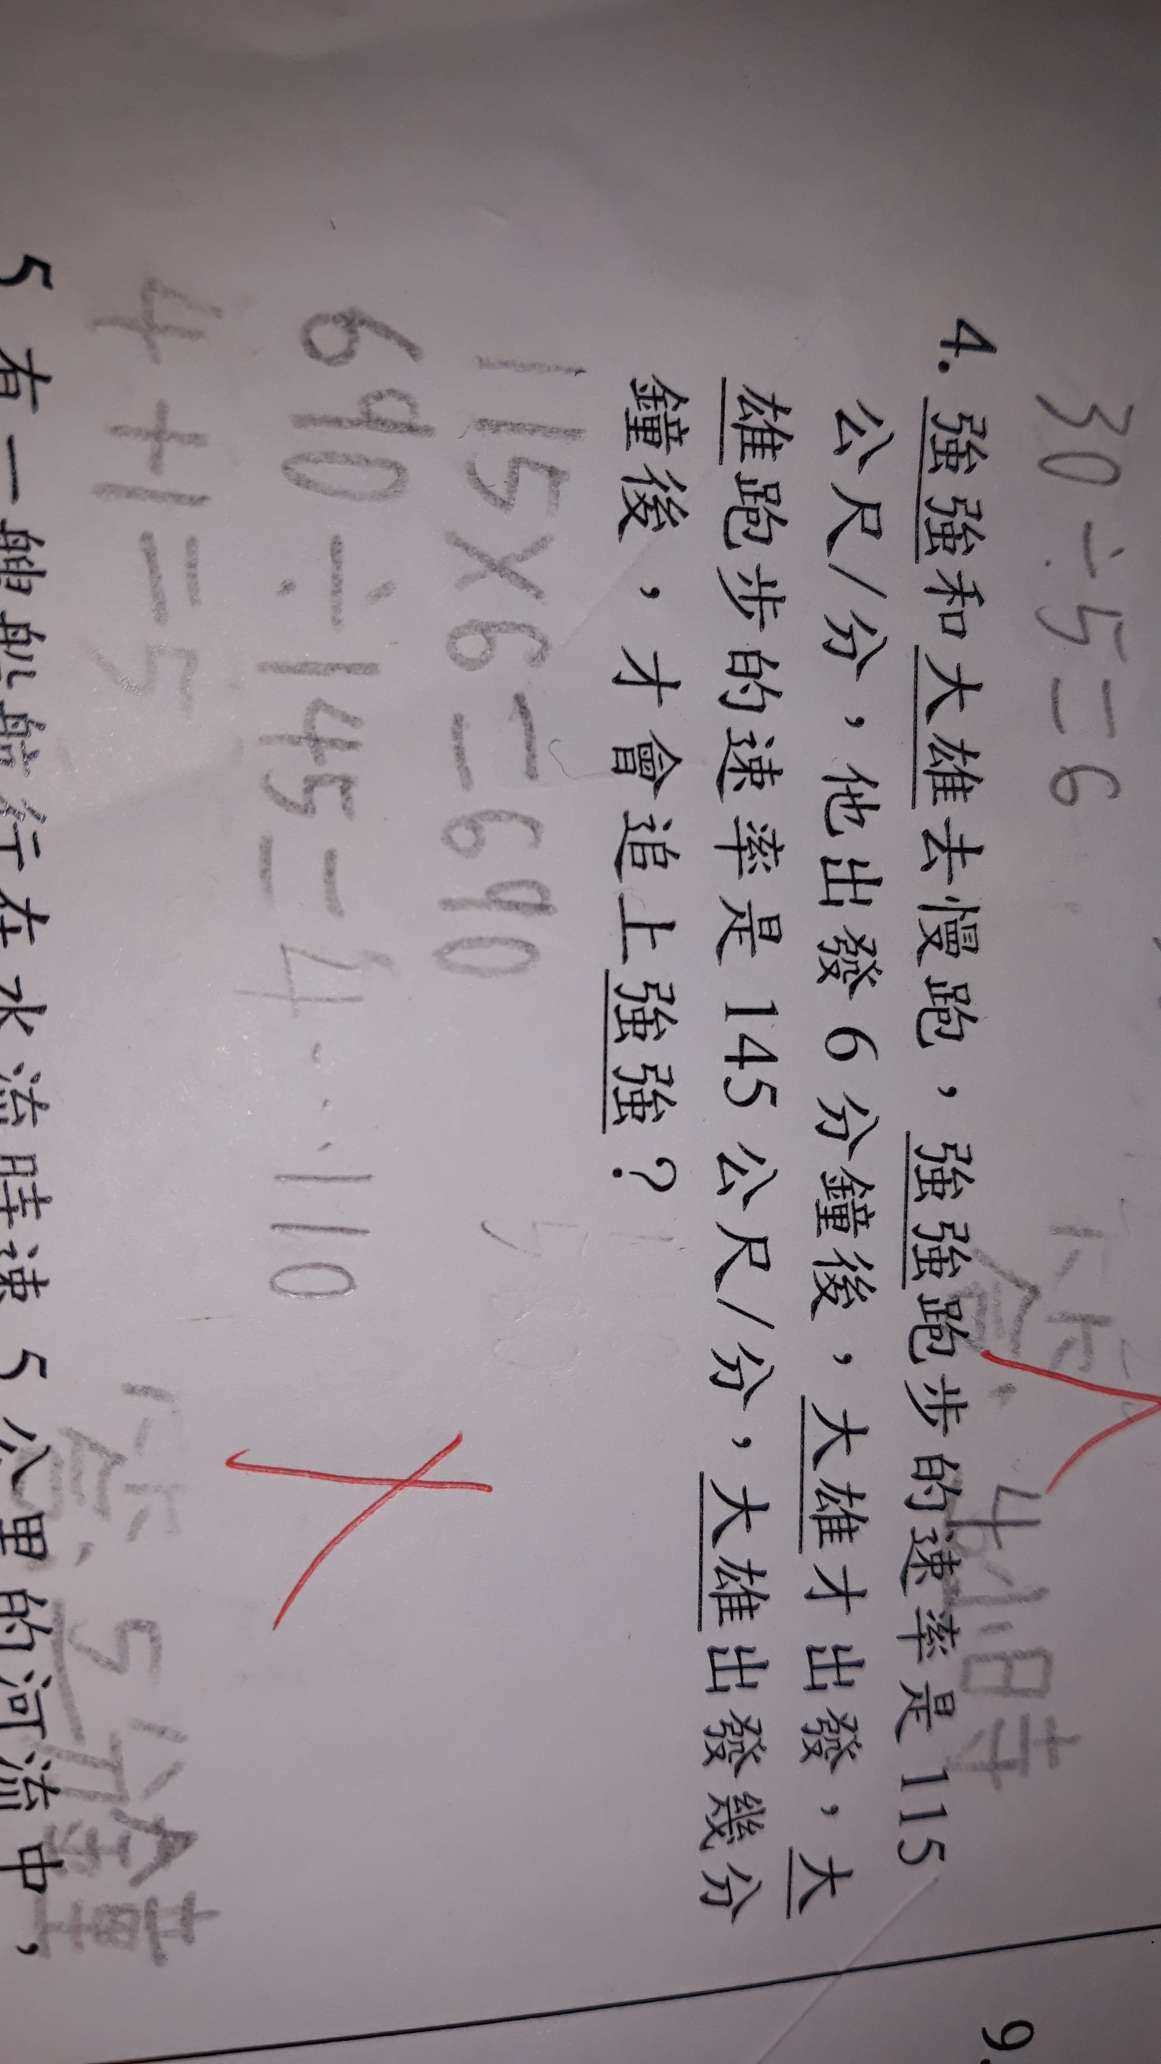 30÷5=6
答:4小時
4. 強強和大雄去慢跑，強強跑步的速率是 115
公尺/分，他出發 6 分鐘後，大雄才出發，大
雄跑步的速率是 145 公尺/分，大雄出發幾分
鐘後，才會追上強強？
115×6=690
690÷145=4...110
4+1=5
答:5分鐘
5 有一艘船航行在水流時速 5 公里的河流中，
9.